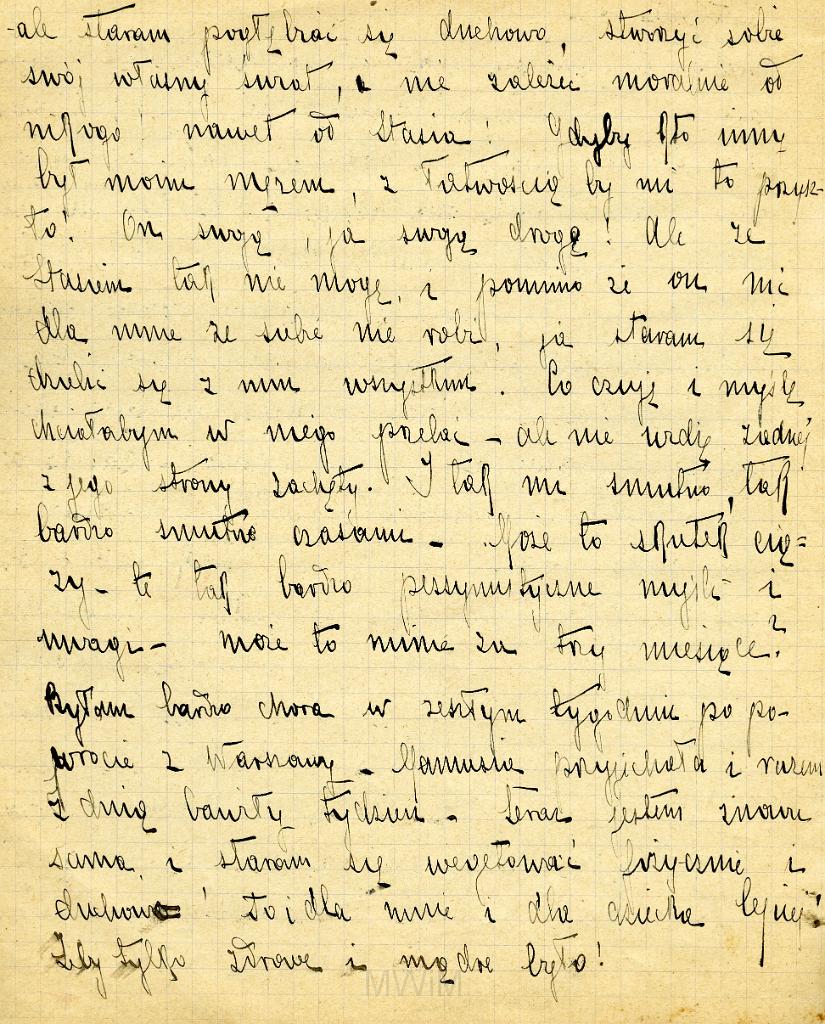 -ale staram pogłębiać się duchowo, stworzyć sobie
swój własny świat, i nie zależeć moralnie od
nikogo! nawet od Stasia! Gdyby kto inny
był moim mężem, z łatwością by mi to przysz-
ło! On swoją, ja swoją drogą! Ale ze
Stasiem tak nie mogę, i pomimo że on nic
dla mnie ze siebie nie robi, ja staram się
dzielić się z nim wszystkim. Co czuję i myślę
chciałabym w niego przelać – ale nie widzę żadnej
z jego strony zachęty. I tak mi smutno, tak
bardzo smutno czasami – Może to skutek cią=
ży – te tak bardzo pessymistyczne myśli i
uwagi – może to minie za trzy miesiące?
Byłam bardzo chora w zeszłym tygodniu po po-
wrocie z Warszawy – Mamusia przyjechała i razem
z bawiły tydzień – teraz jestem znowu
sama, i staram się wegetować fizycznie i
duchowo! to i dla mnie i dla dziecka lepiej!
Żeby tylko zdrowe i mądre było!
MWiM